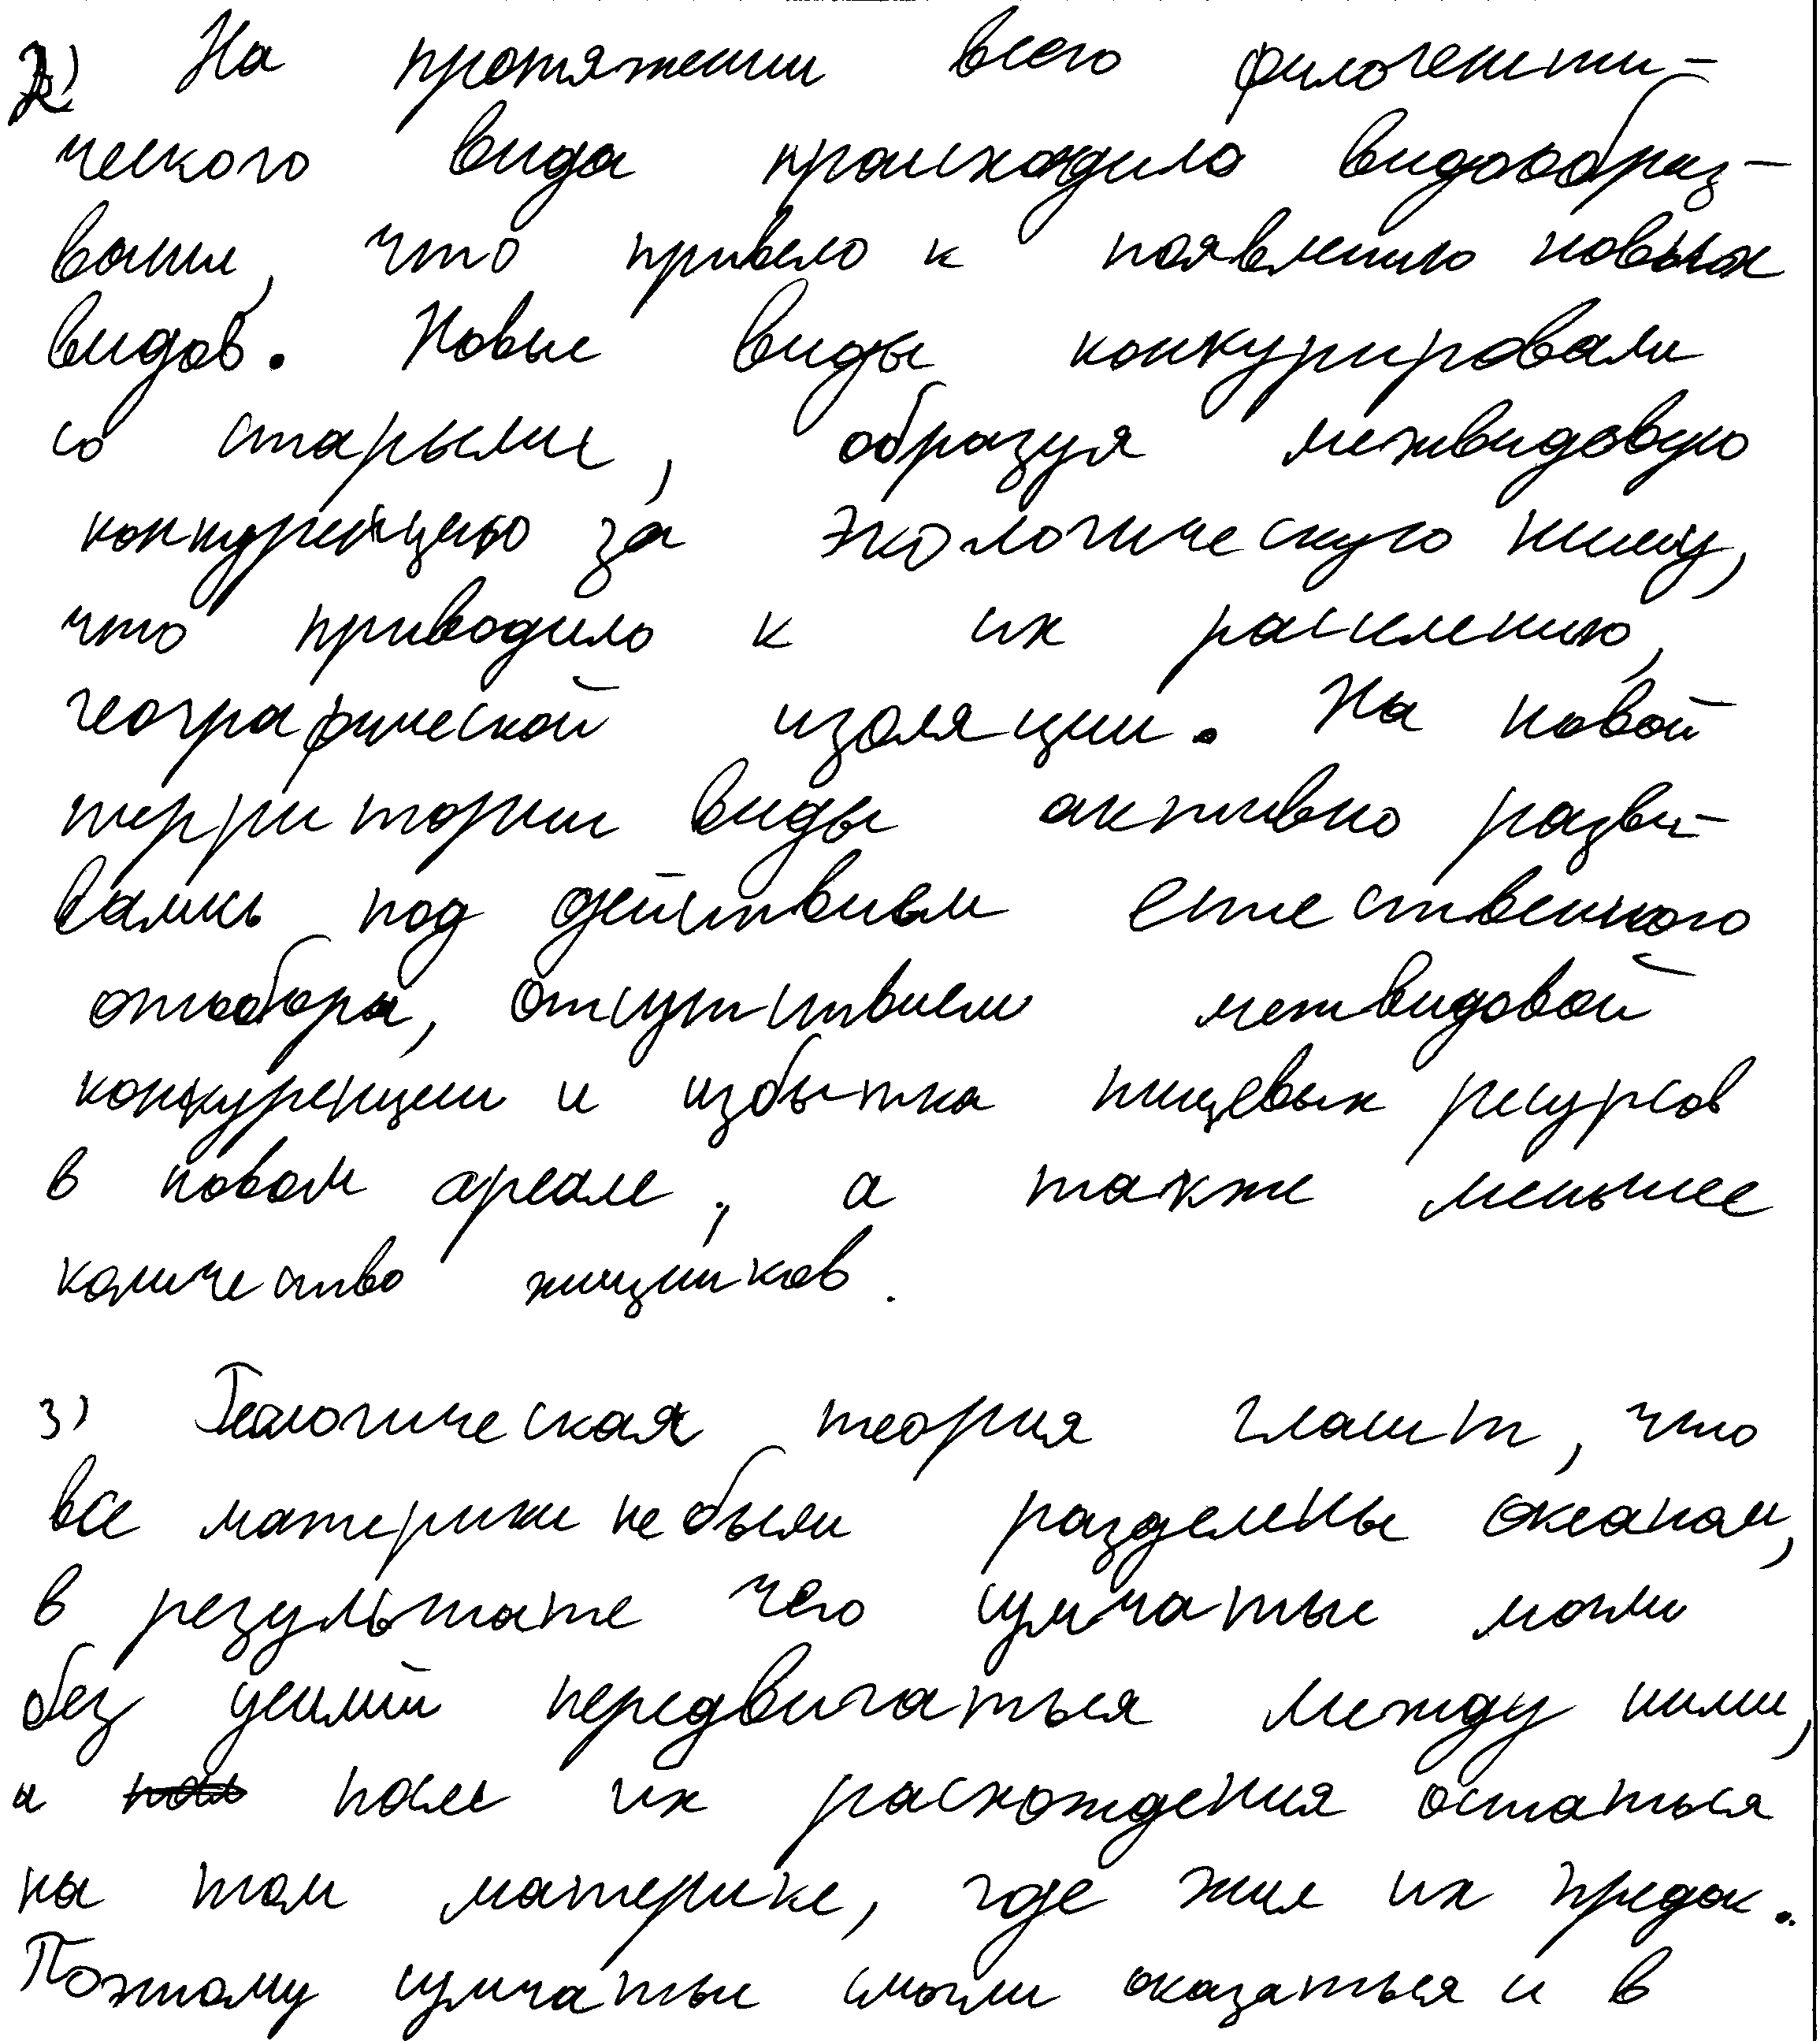 2) На протяжении всего филогенети-
ческого вида происходило видообраз-
вание, что привело к появлению новых
видов. Новые виды конкурировали
со старыми, образуя межвидовую
конкуренцию за экологическую нишу,
что приводило к их расселению,
географической изоляции. На новой
территории виды активно разви-
вались под действием естественного
отбора, отсутствием межвидовой
конкуренции и избытка пищевых ресурсов
в новом ареале, а также меньшее
количество хищников.
3) Геологическая теория гласит, что
все материки не были разделены океаном,
в результате чего сумчатые могли
без усилий передвигаться между ними,
а после их расхождения остаться
на том материке, где жил их предок.
Поэтому сумчатые смогли оказаться и в